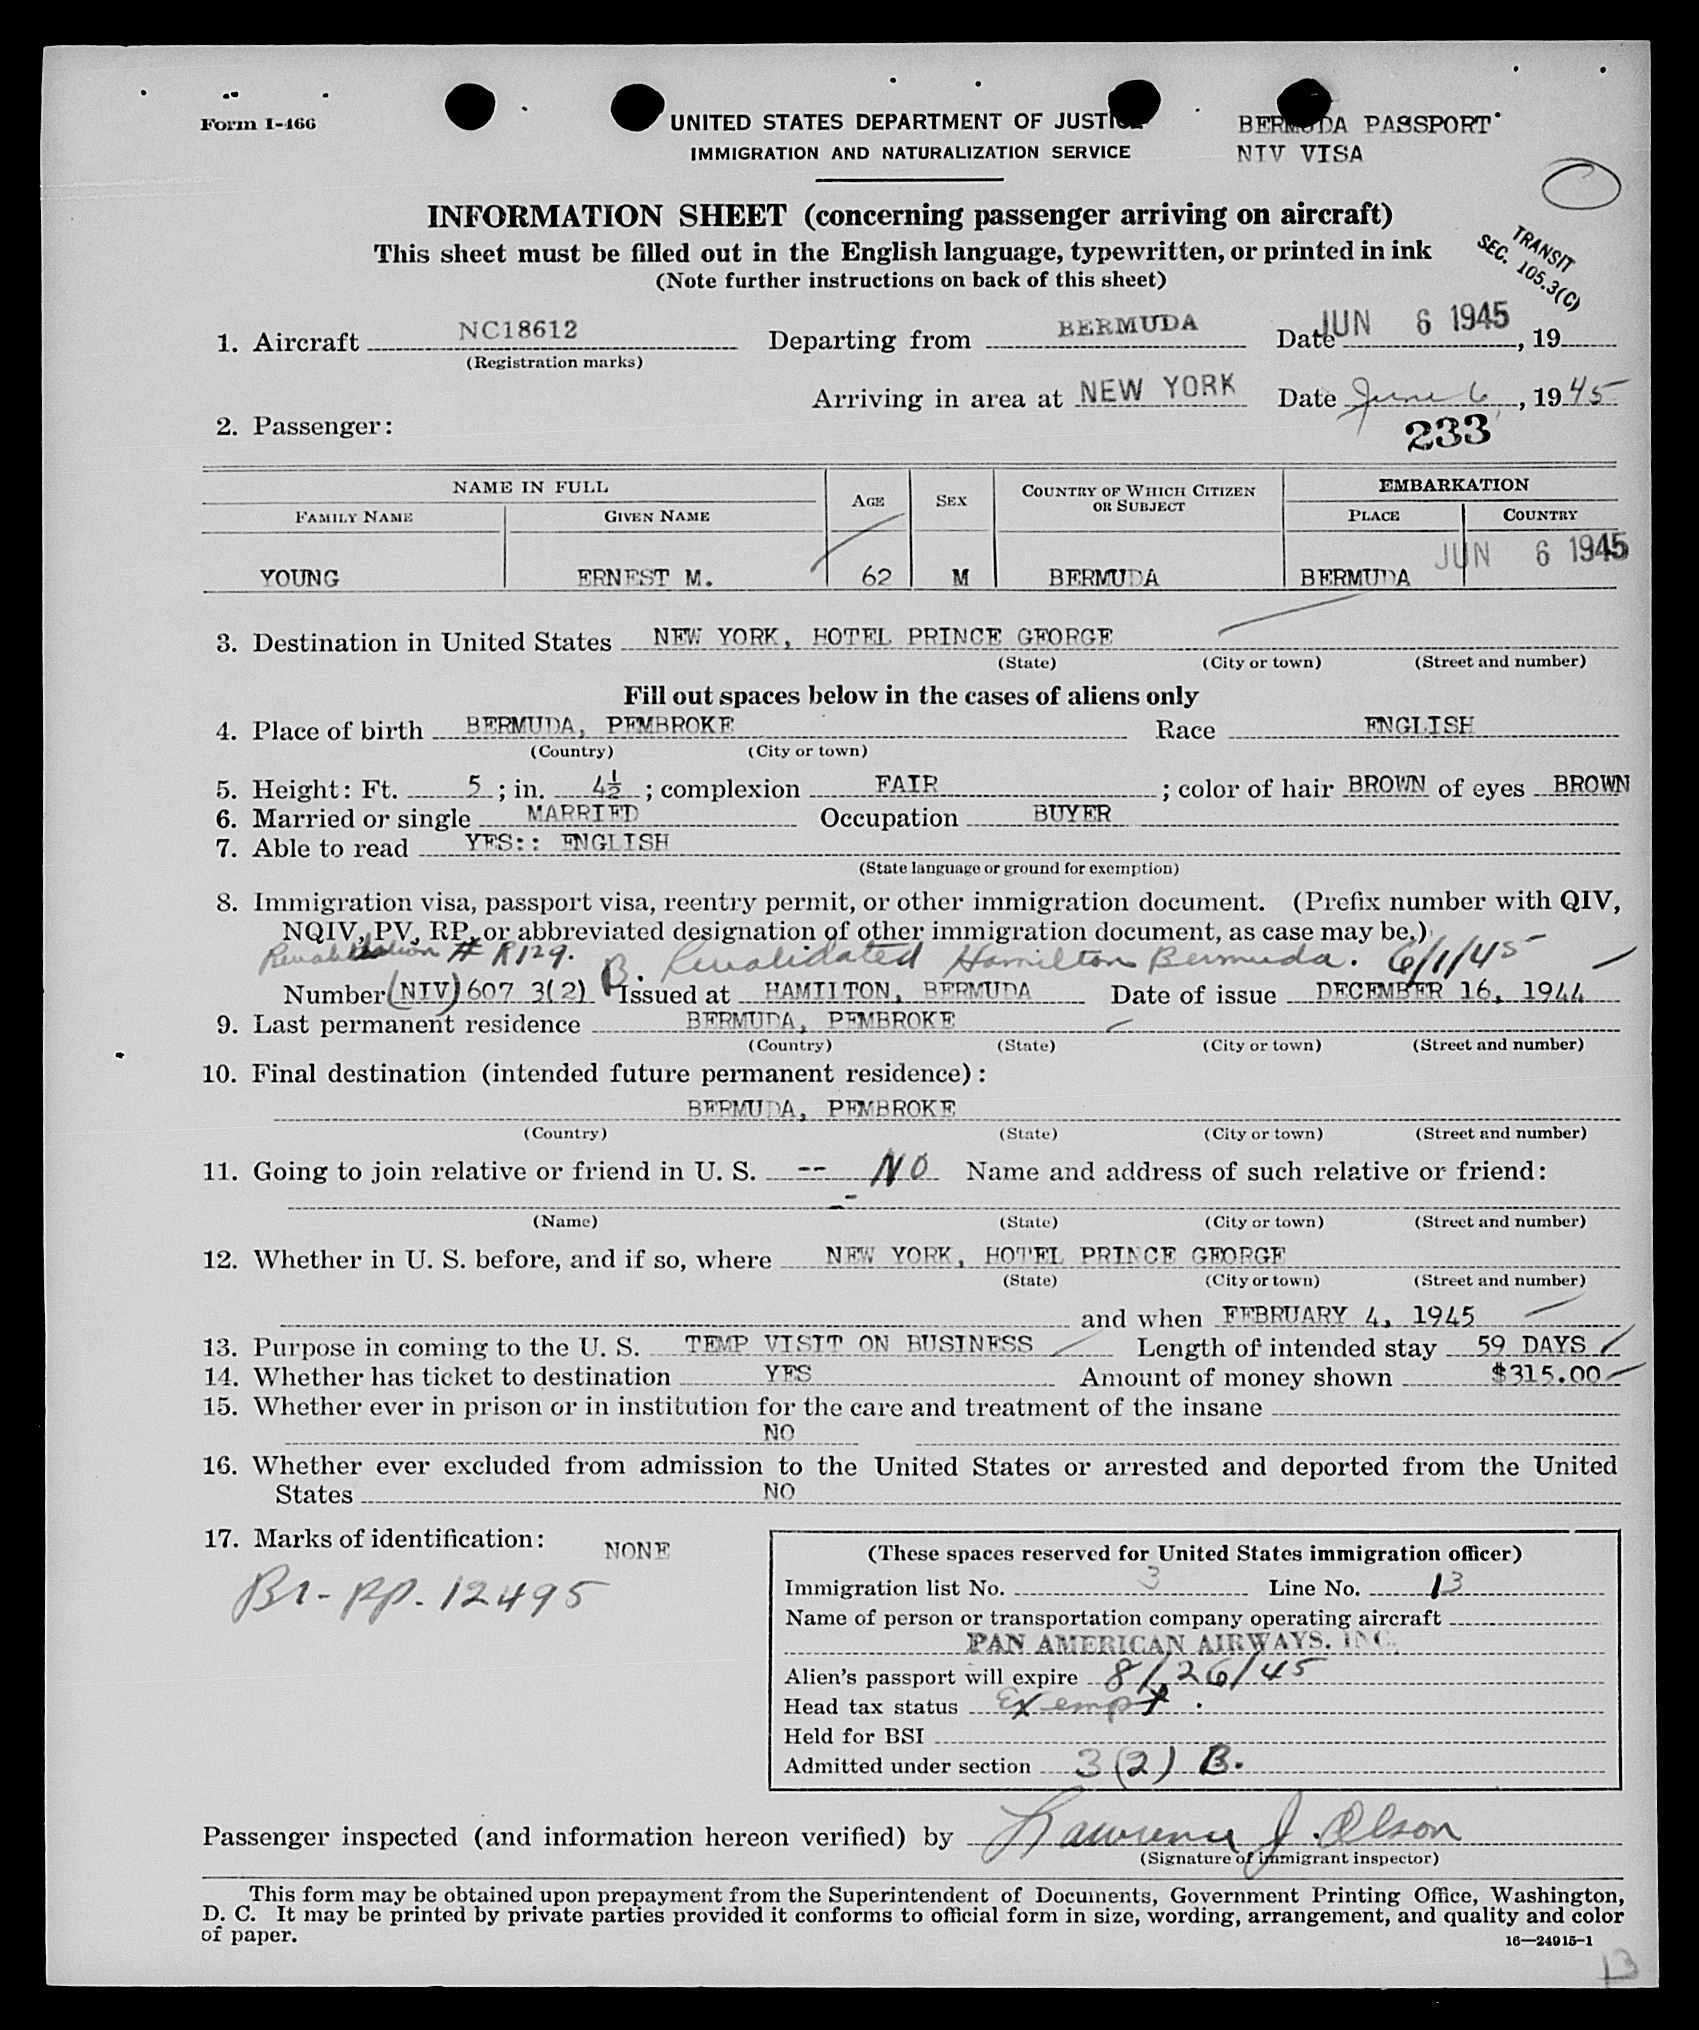 Form I-466
UNITED STATES DEPARTMENT OF JUSTICE
IMMIGRATION AND NATURALIZATION SERVICE
BERMUDA PASSPORT
NIV VISA
INFORMATION SHEET (concerning passenger arriving on aircraft)
This sheet must be filled out in the English language, typewritten, or printed in ink
(Note further instructions on back of this sheet)
TRANSIT
SEC. 105.3(C)
1. Aircraft NC18612 Departing from BERMUDA Date JUN 6 1945, 19
(Registration marks)
Arriving in area at NEW YORK Date June 6, 1945
2. Passenger:
233
NAME IN FULL AGE SEX COUNTRY OF WHICH CITIZEN OR SUBJECT EMBARKATION
FAMILY NAME GIVEN NAME PLACE COUNTRY
JUN 6 1945
YOUNG ERNEST M. 62 M BERMUDA BERMUDA
3. Destination in United States NEW YORK, HOTEL PRINCE GEORGE
(State) (City or town) (Street and number)
Fill out spaces below in the cases of aliens only
4. Place of birth BERMUDA, PEMBROKE Race ENGLISH
(Country) (City or town)
5. Height: Ft. 5 ; in. 4½ ; complexion FAIR ; color of hair BROWN of eyes BROWN
6. Married or single MARRIED Occupation BUYER
7. Able to read YES:: ENGLISH
(State language or ground for exemption)
8. Immigration visa, passport visa, reentry permit, or other immigration document. (Prefix number with QIV,
NQIV, PV, RP, or abbreviated designation of other immigration document, as case may be.)
Revalidation # R129. B. Revalidated Hamilton Bermuda. 6/1/45
Number (NIV) 607 3(2) Issued at HAMILTON, BERMUDA Date of issue DECEMBER 16, 1944
9. Last permanent residence BERMUDA, PEMBROKE
(Country) (State) (City or town) (Street and number)
10. Final destination (intended future permanent residence):
BERMUDA, PEMBROKE
(Country) (State) (City or town) (Street and number)
11. Going to join relative or friend in U. S. -- NO Name and address of such relative or friend:
(Name) (State) (City or town) (Street and number)
12. Whether in U. S. before, and if so, where NEW YORK, HOTEL PRINCE GEORGE
(State) (City or town) (Street and number)
and when FEBRUARY 4, 1945
13. Purpose in coming to the U. S. TEMP VISIT ON BUSINESS Length of intended stay 59 DAYS
14. Whether has ticket to destination YES Amount of money shown $315.00
15. Whether ever in prison or in institution for the care and treatment of the insane
NO
16. Whether ever excluded from admission to the United States or arrested and deported from the United
States NO
17. Marks of identification: NONE
Br-pp. 12495
(These spaces reserved for United States immigration officer)
Immigration list No. 3 Line No. 13
Name of person or transportation company operating aircraft
PAN AMERICAN AIRWAYS, INC.
Alien's passport will expire 8/26/45
Head tax status Exempt.
Held for BSI
Admitted under section 3(2) B.
Passenger inspected (and information hereon verified) by Lawrence J. Olson
(Signature of immigrant inspector)
This form may be obtained upon prepayment from the Superintendent of Documents, Government Printing Office, Washington,
D. C. It may be printed by private parties provided it conforms to official form in size, wording, arrangement, and quality and color
of paper.
16—24915-1
13